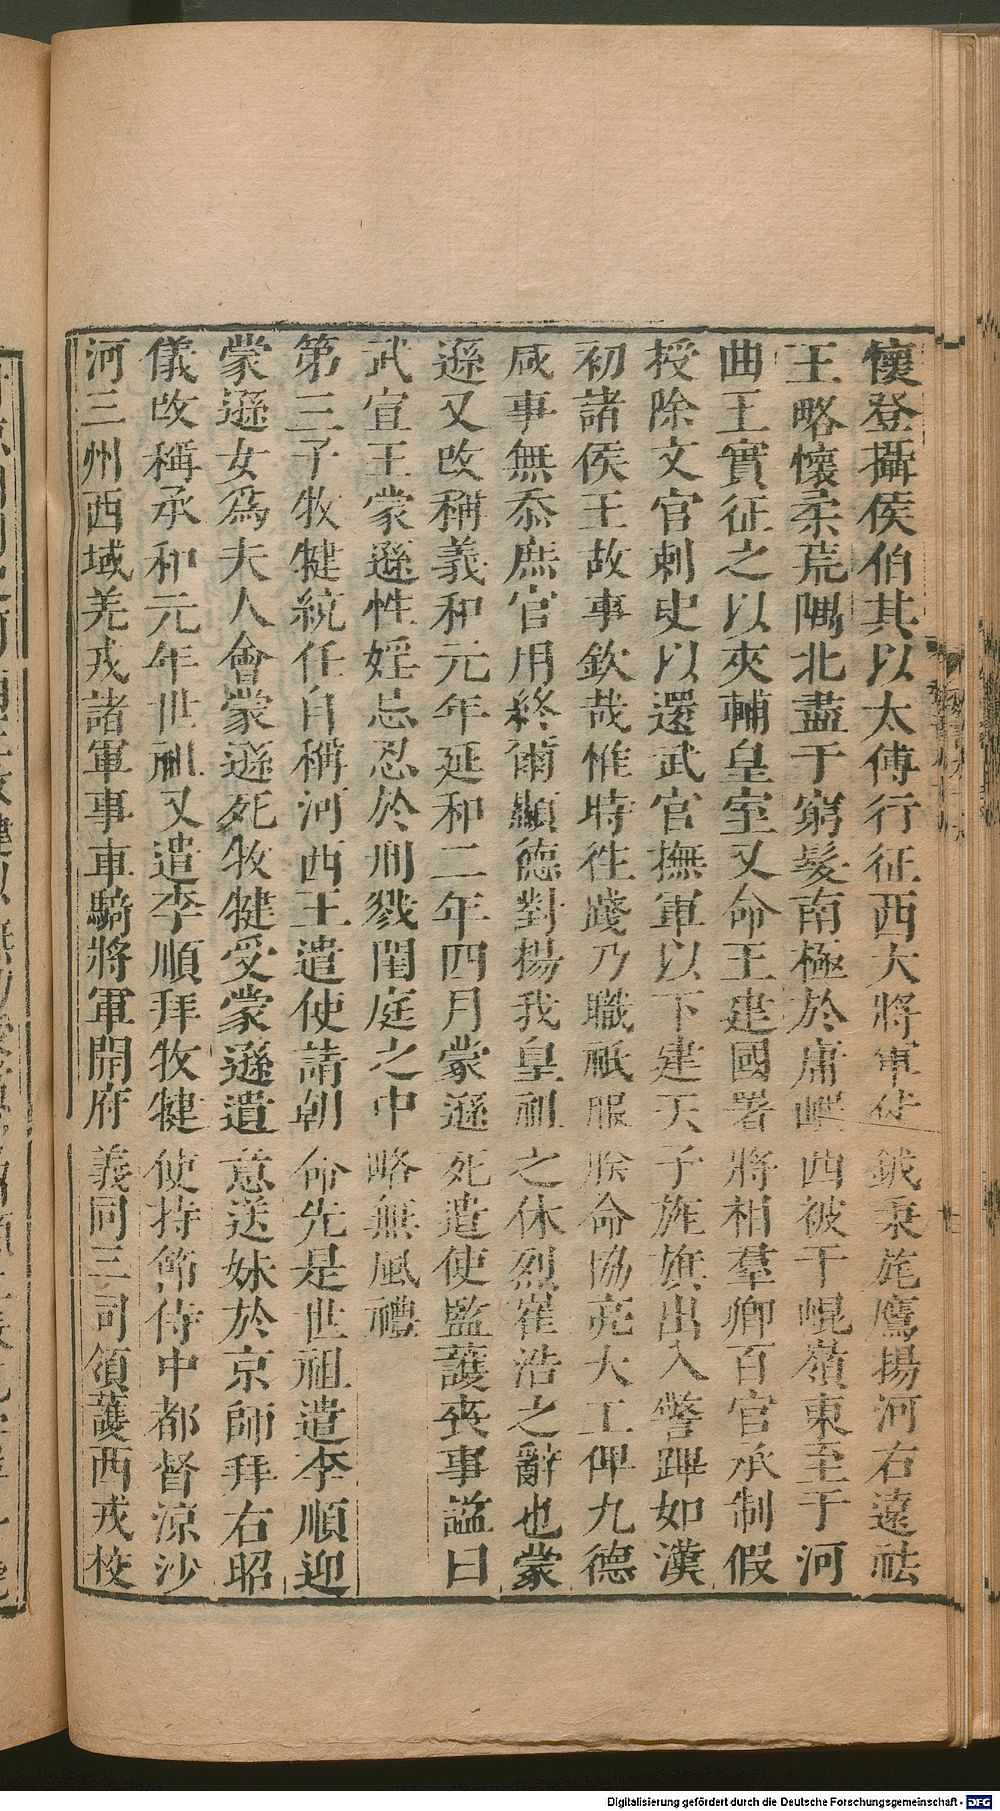 懷登攝侯伯其以太傅行征西大將軍仗鉞秉旄鷹揚河右遠祛
王略懷柔荒隅北盡于窮髮南極於庸岷西被于崐嶺東至于河
曲王實征之以夾輔皇室又命王建國署將相羣卿百官承制假
授除文官刺史以還武官撫軍以下建天子旌旗出入警蹕如漢
初諸侯王故事欽哉惟時往踐乃職祗服朕命協亮天工俾九德
咸事無忝庶官用終爾顯德對揚我皇祖之休烈崔浩之辭也蒙
遜又改稱義和元年延和二年四月蒙遜死遣使監護喪事諡曰
武宣王蒙遜性婬忌忍於刑戮閨庭之中略無風禮
第三子牧犍統任自稱河西王遣使請朝命先是世祖遣李順迎
蒙遜女爲夫人會蒙遜死牧犍受蒙遜遺意送妹於京師拜右昭
儀改稱承和元年世祖又遣李順拜牧犍使持節侍中都督涼沙
河三州西域羌戎諸軍事車騎將軍開府義同三司領護西戎校
Digitalisierung gefördert durch die Deutsche Forschungsgemeinschaft - DFG